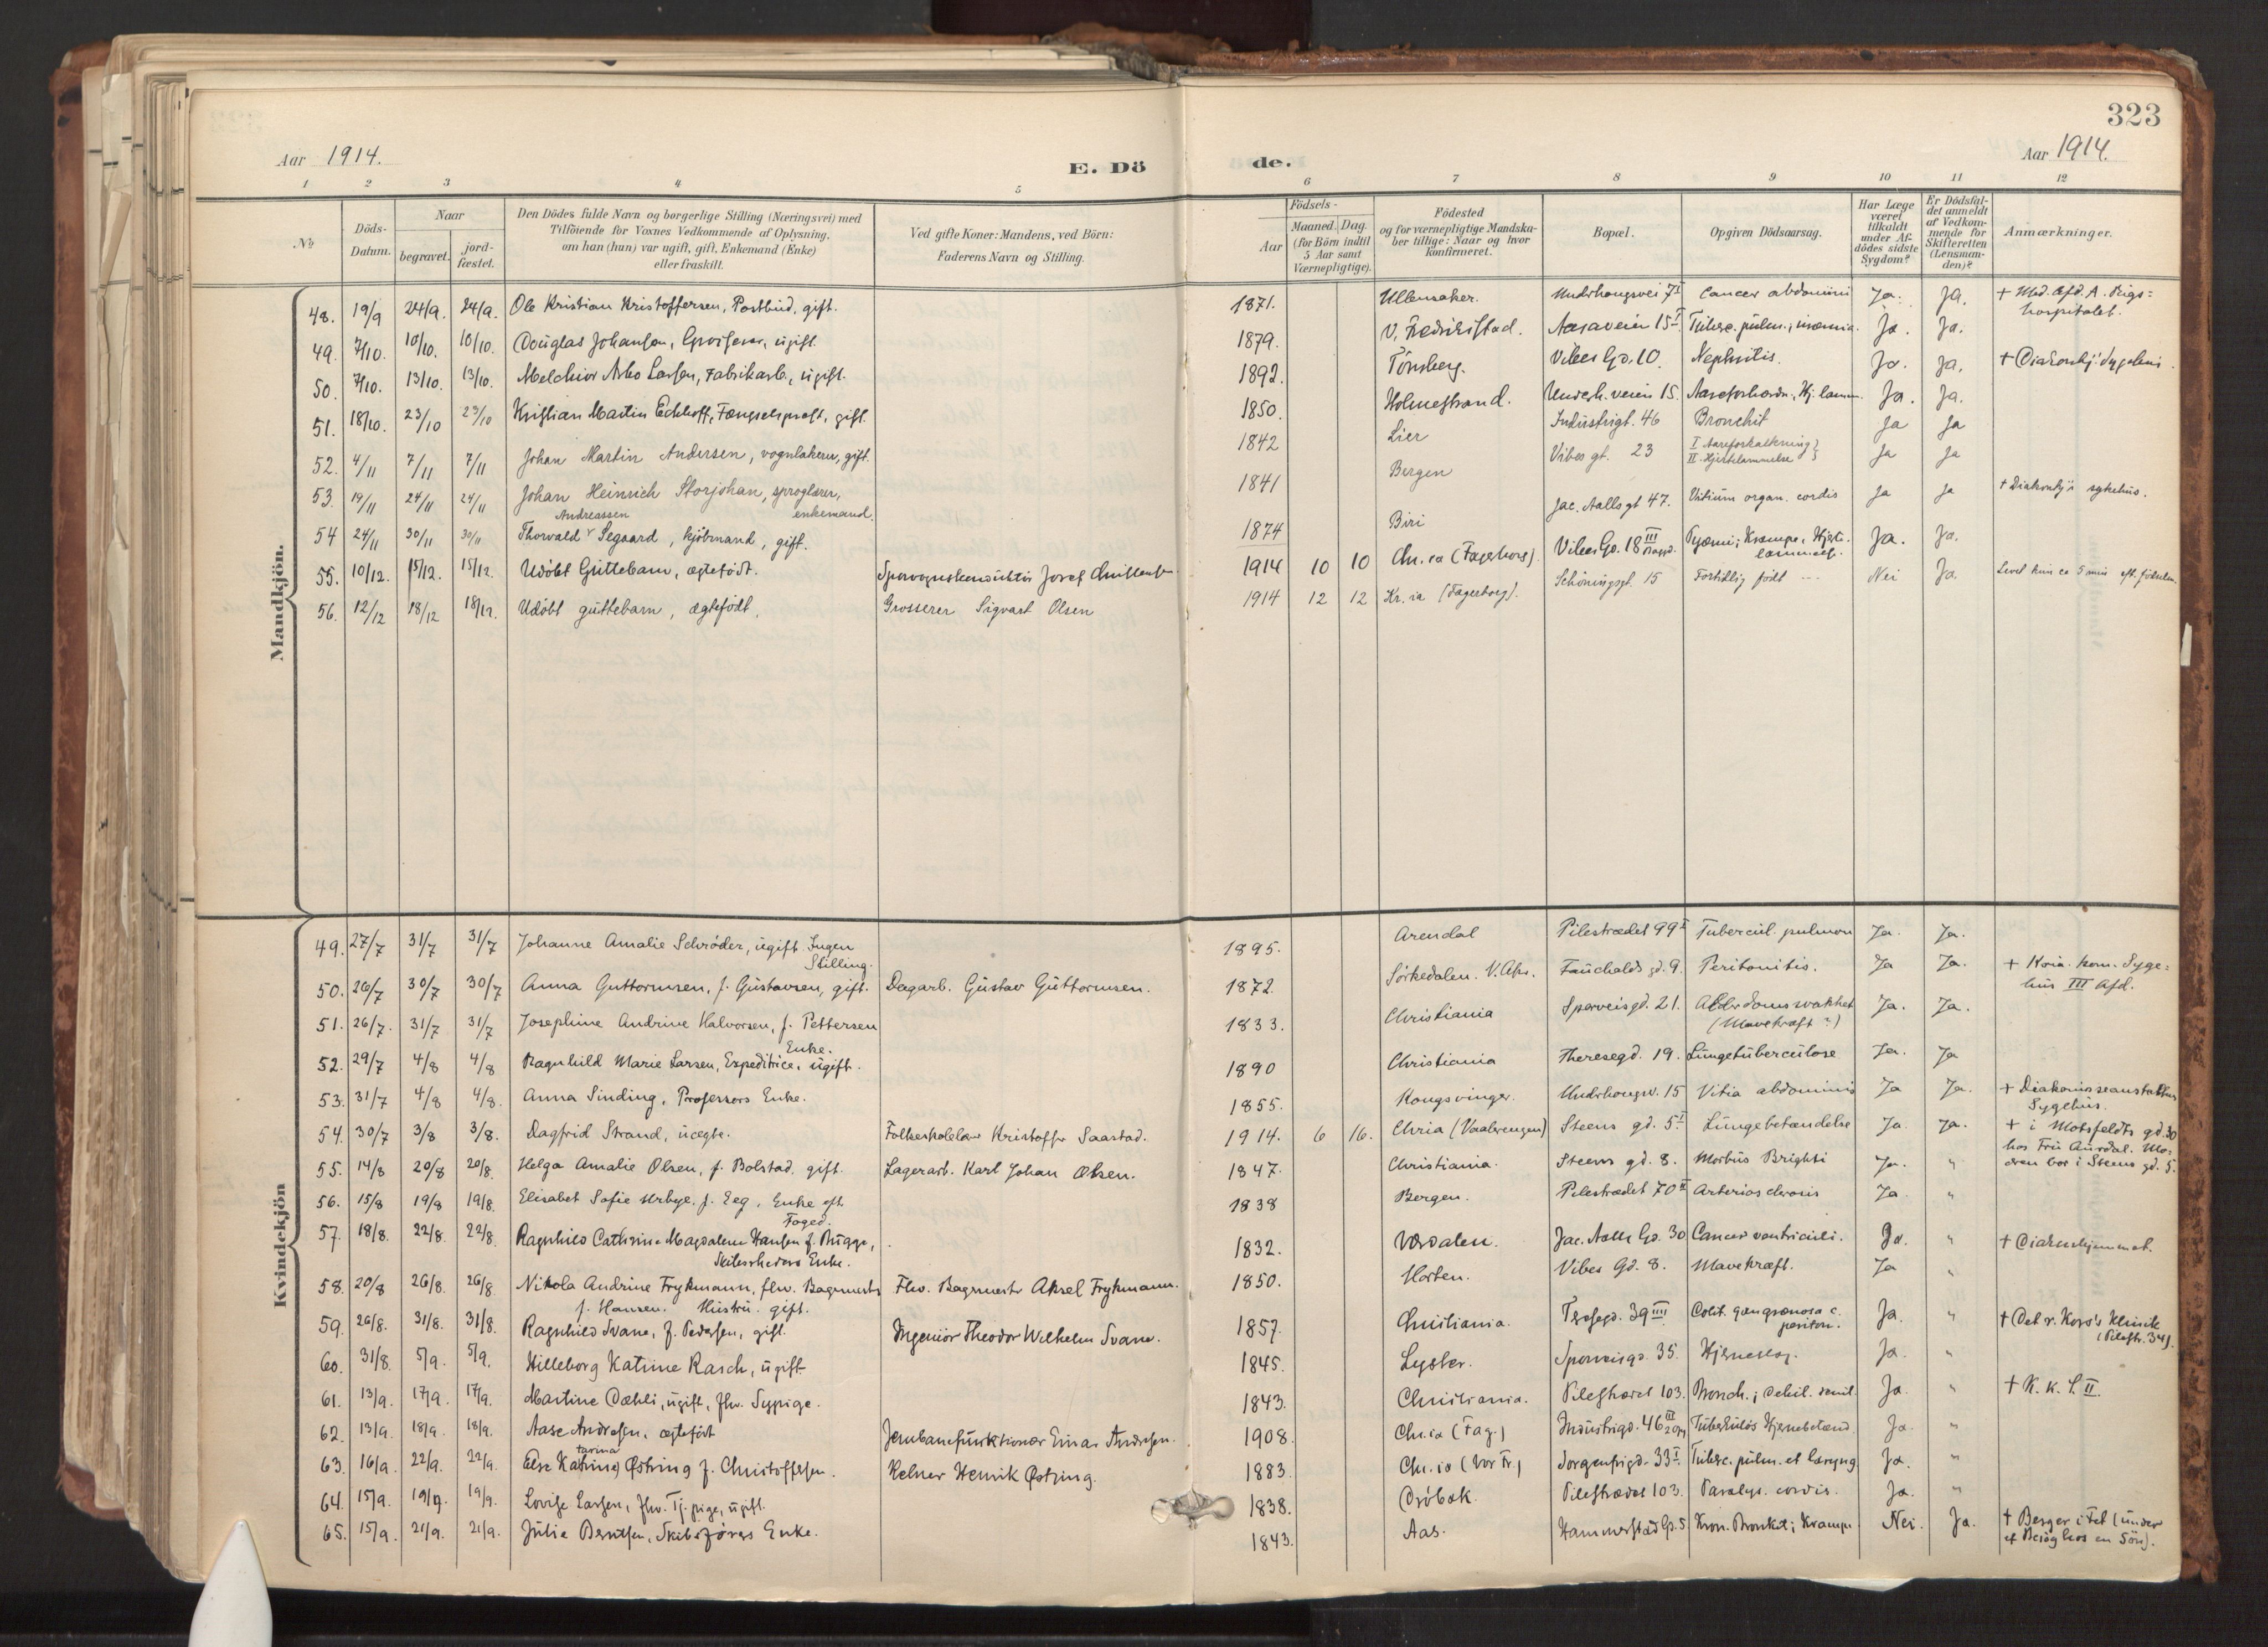 323
Aar 1914.
E. Dö
de.
Aar 1914.
1 2 3 4 5 6 7 8 9 10 11 12
No
Döds-
Datum.
Naar
begravet.
jord-
fæstet.
Den Dödes fulde Navn og borgerlige Stilling (Næringsvei) med
Tilföiende for Voxnes Vedkommende af Oplysning,
om han (hun) var ugift, gift, Enkemand (Enke)
eller fraskilt.
Ved gifte Koner: Mandens, ved Börn:
Faderens Navn og Stilling.
Födsels-
Aar
Maaned. Dag.
(for Börn indtil
5 Aar samt
Værnepligtige).
Födested
og for værnepligtige Mandska-
ber tillige: Naar og hvor
konfirmeret.
Bopæl.
Opgiven Dödsaarsag.
Har Læge
været
tilkaldt
under Af-
dödes sidste
Sygdom?
Er Dödsfal-
det anmeldt
af Vedkom-
mende for
Skifteretten
(Lensman-
den)?
Anmærkninger.
Mandkjön.
48. 19/9 24/9. 24/9. Ole Kristian Kristoffersen, Postbud, gift. 1871. Ullensaker. Underhaugsvei 7 I Cancer abdomini Ja. Ja. + Med. Afd. A. Rigs=
hospitalet.
49. 7/10. 10/10. 10/10. Douglas Johansen, ugift. 1879. V. Fredrikstad. Aasaveien 15 I Tuberc. pulm.; Ja. Ja.
50. 7/10. 13/10. 13/10. Melchior Arbo Larsen, Fabrikarb., ugift. 1892. Tönsberg. Vibes Gd. 10. Nephritis. Ja. Ja. + Diakonhj. Sygehus.
51. 18/10. 23/10 23/10 Kristian Martin Eckhoff, Fængselsprest, gift. 1850. Holmestrand. Underh. veien 15. Aareforkalkn., Hj. lamm. Ja. Ja.
52. 4/11 7/11 7/11 Johan Martin Andersen, vognlakerer, gift. 1842 Lier Industrigt. 46 Bronchit Ja Ja
53. 19/11 24/11 24/11 Johan Heinrich Storjohan, sproglærer,
enkemand. 1841 Bergen Vibes gt. 23 I Aareforkalkning
II Hjertelammelse } Ja Ja
54 24/11 30/11 30/11 Thorvald Andreassen Segaard, kjöbmand, gift. 1874 Biri Jac. Aalls gt 47. Vitium organ. cordis Ja Ja + Diakonhj's sykehus.
55. 10/12. 15/12. 15/12. Udöbt Guttebarn, ægtefödt. Sporvognskonduktör Josef Christensen 1914 10 10 Chr.ia (Fagerborg) Vibes Gd. 18 III Pyæmi; Krampe, Hjerte-
lammelse. Ja. Ja.
56. 12/12 18/12 18/12. Udöbt guttebarn, ægtefödt. Grosserer Sigvart Olsen 1914 12 12 Kr.ia (Fagerborg). Schöningsgt. 15 Fortidlig födt Nei Ja. Levet kun ca 5 min eft. födselen.
Kvindekjön
49. 27/7 31/7 31/7 Johanne Amalie Schröder, ugift. Ingen
Stilling. 1895. Arendal Pilestrædet 99 I Tubercul. pulmon Ja. Ja.
50. 26/7 30/7 30/7 Anna Guttormsen, f. Gustavsen, gift. Dagarb. Gustav Guttormsen. 1872. Sörkedalen. V. Aker. Fauchalds gd. 9. Peritonitis. Ja Ja. + Kria. kom. Syge=
hus III Afd.
51. 26/7. 31/7 31/7 Josephine Andrine Halvorsen, f. Pettersen
Enke. 1833. Christiania Sporveisgd. 21. Alderdomssvakhet
(Mavekræft?) Ja. Ja.
52. 29/7 4/8 4/8 Ragnhild Marie Larsen, Expeditrice, ugift. 1890 Christiania Theresegd. 19. Lungetuberculose Ja. Ja
53. 31/7 4/8 4/8. Anna Sinding, Professors Enke. 1855. Kongsvinger. Underhaugsv. 15 Vitia abdominis Ja Ja. + Diakonisseanstaltens
Sygehus.
54. 30/7 3/8 3/8. Dagfrid Strand, uægte. Folkeskolelær Kristoffer Saastad. 1914. 6 16. Chria (Vaalerengen) Steens gd. 5 I Lungebetændelse Ja. Ja. + i Motzfeldts gd. 30
hos Fru Aurdal. Mo-
deren bor i Steens gd. 5.
55. 14/8 20/8 20/8. Helga Amalie Olsen, f. Bolstad, gift. Lagerarb. Karl Johan Olsen. 1847. Christiania. Steens gd. 8. Morbus Brighti Ja. "
56. 15/8 19/8 19/8. Elisabet Sofie Urbye, f. Eeg, Enke eft.
Foged. 1838 Bergen. Pilestrædet 70 II Arteriosclerosis Ja. "
57. 18/8. 22/8. 22/8. Ragnhild Cathrine Magdalena Hansen f. Brügge,
Skibsrheders Enke. 1832. Værdalen. Jac. Aalls Gd. 30 Cancer ventriculi. Ja. " + Diakonhjemmet.
58. 20/8 26/8. 26/8. Nikola Andrine Frykmann, fhv. Bagermesters
f. Hansen. Hustru. gift. Fhv. Bagermester Aksel Frykmann. 1850. Horten. Vibes Gd. 8. Mavekræft. Ja "
59. 26/8. 31/8. 31/8. Ragnhild Svane, f. Pedersen, gift. Ingeniör Theodor Wilhelm Svane. 1857. Christiania. 39 IIII Colit. gangrænosa c.
periton. Ja. " + Det r. Kors's Klinik
(Pilestr. 34).
60. 31/8. 5/9. 5/9. Hilleborg Katrine Rasch, ugift 1845. Lyster. Sporveisgd. 35. Hjerneslag. Ja. "
61. 13/9. 17/9. 17/9. Martine Dæhli, ugift, fhv. Sypige. 1843. Christiania. Pilestrædet 103. Bronch.; debil. senil. Ja. " + K. k. S. II.
62. 13/9. 18/9. 18/9. Aase Andresen, ægtefödt Jernbanefunktionær Einar Andresen. 1908. Chr.ia (Fag.) Industrigd. 46 III Tuberkulös Hjernebetænd. Ja. "
63. 16/9. 22/9. 22/9. Else Katarina (Katrine) Østring f. Christoffersen. Kelner Henrik Østring. 1883. Chr.ia (Vor Fr.) Sorgenfrigd. 33 I Tuberc. pulm. et laryng. Ja. "
64. 15/9. 19/9. 19/9. Lovise Larsen, fhv. Tj. pige, ugift. 1838. Dröbak. Pilestrædet 103. Paralys. cordis. Ja. "
65. 15/9. 21/9. 21/9. Julie Berntsen, Skibsförers Enke. 1843. Aas. Hammerstad Gd. 5 Kron. Bronkit; Krampe Nei. Ja. + Berger i Fet (under
et Besög hos en Sön).